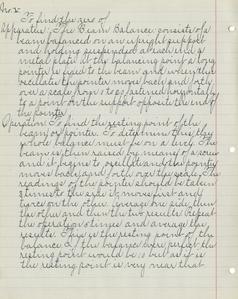 No. 2.
To find the use of
Apparatus: The Beam Balance consists of a
beam balanced on an upright support
and holding suspended at each end a
metal plate at the balancing point a long
pointer is fixed to the beam and when this
oscillates the pointer moves back and forth
over a scale from 0 to 20 attached horizontally
to a point on the support opposite the end of
the pointer.
Operation: To find the resting point of the
beam or pointer. To determine this, the
whole balance must be on a level. The
beam is then raised by means of a screw
and it begins to oscillate and the pointer
moves back and forth over the scale. The
readings of the pointer should be taken
times to the side it moves first and
twice on the other. Average one side, then
the other and then the two results. Repeat
the operation times and average the
results. This is the resting point of the
balance. If the balance were perfect the
resting point would be but as it is
the resting point is very near that